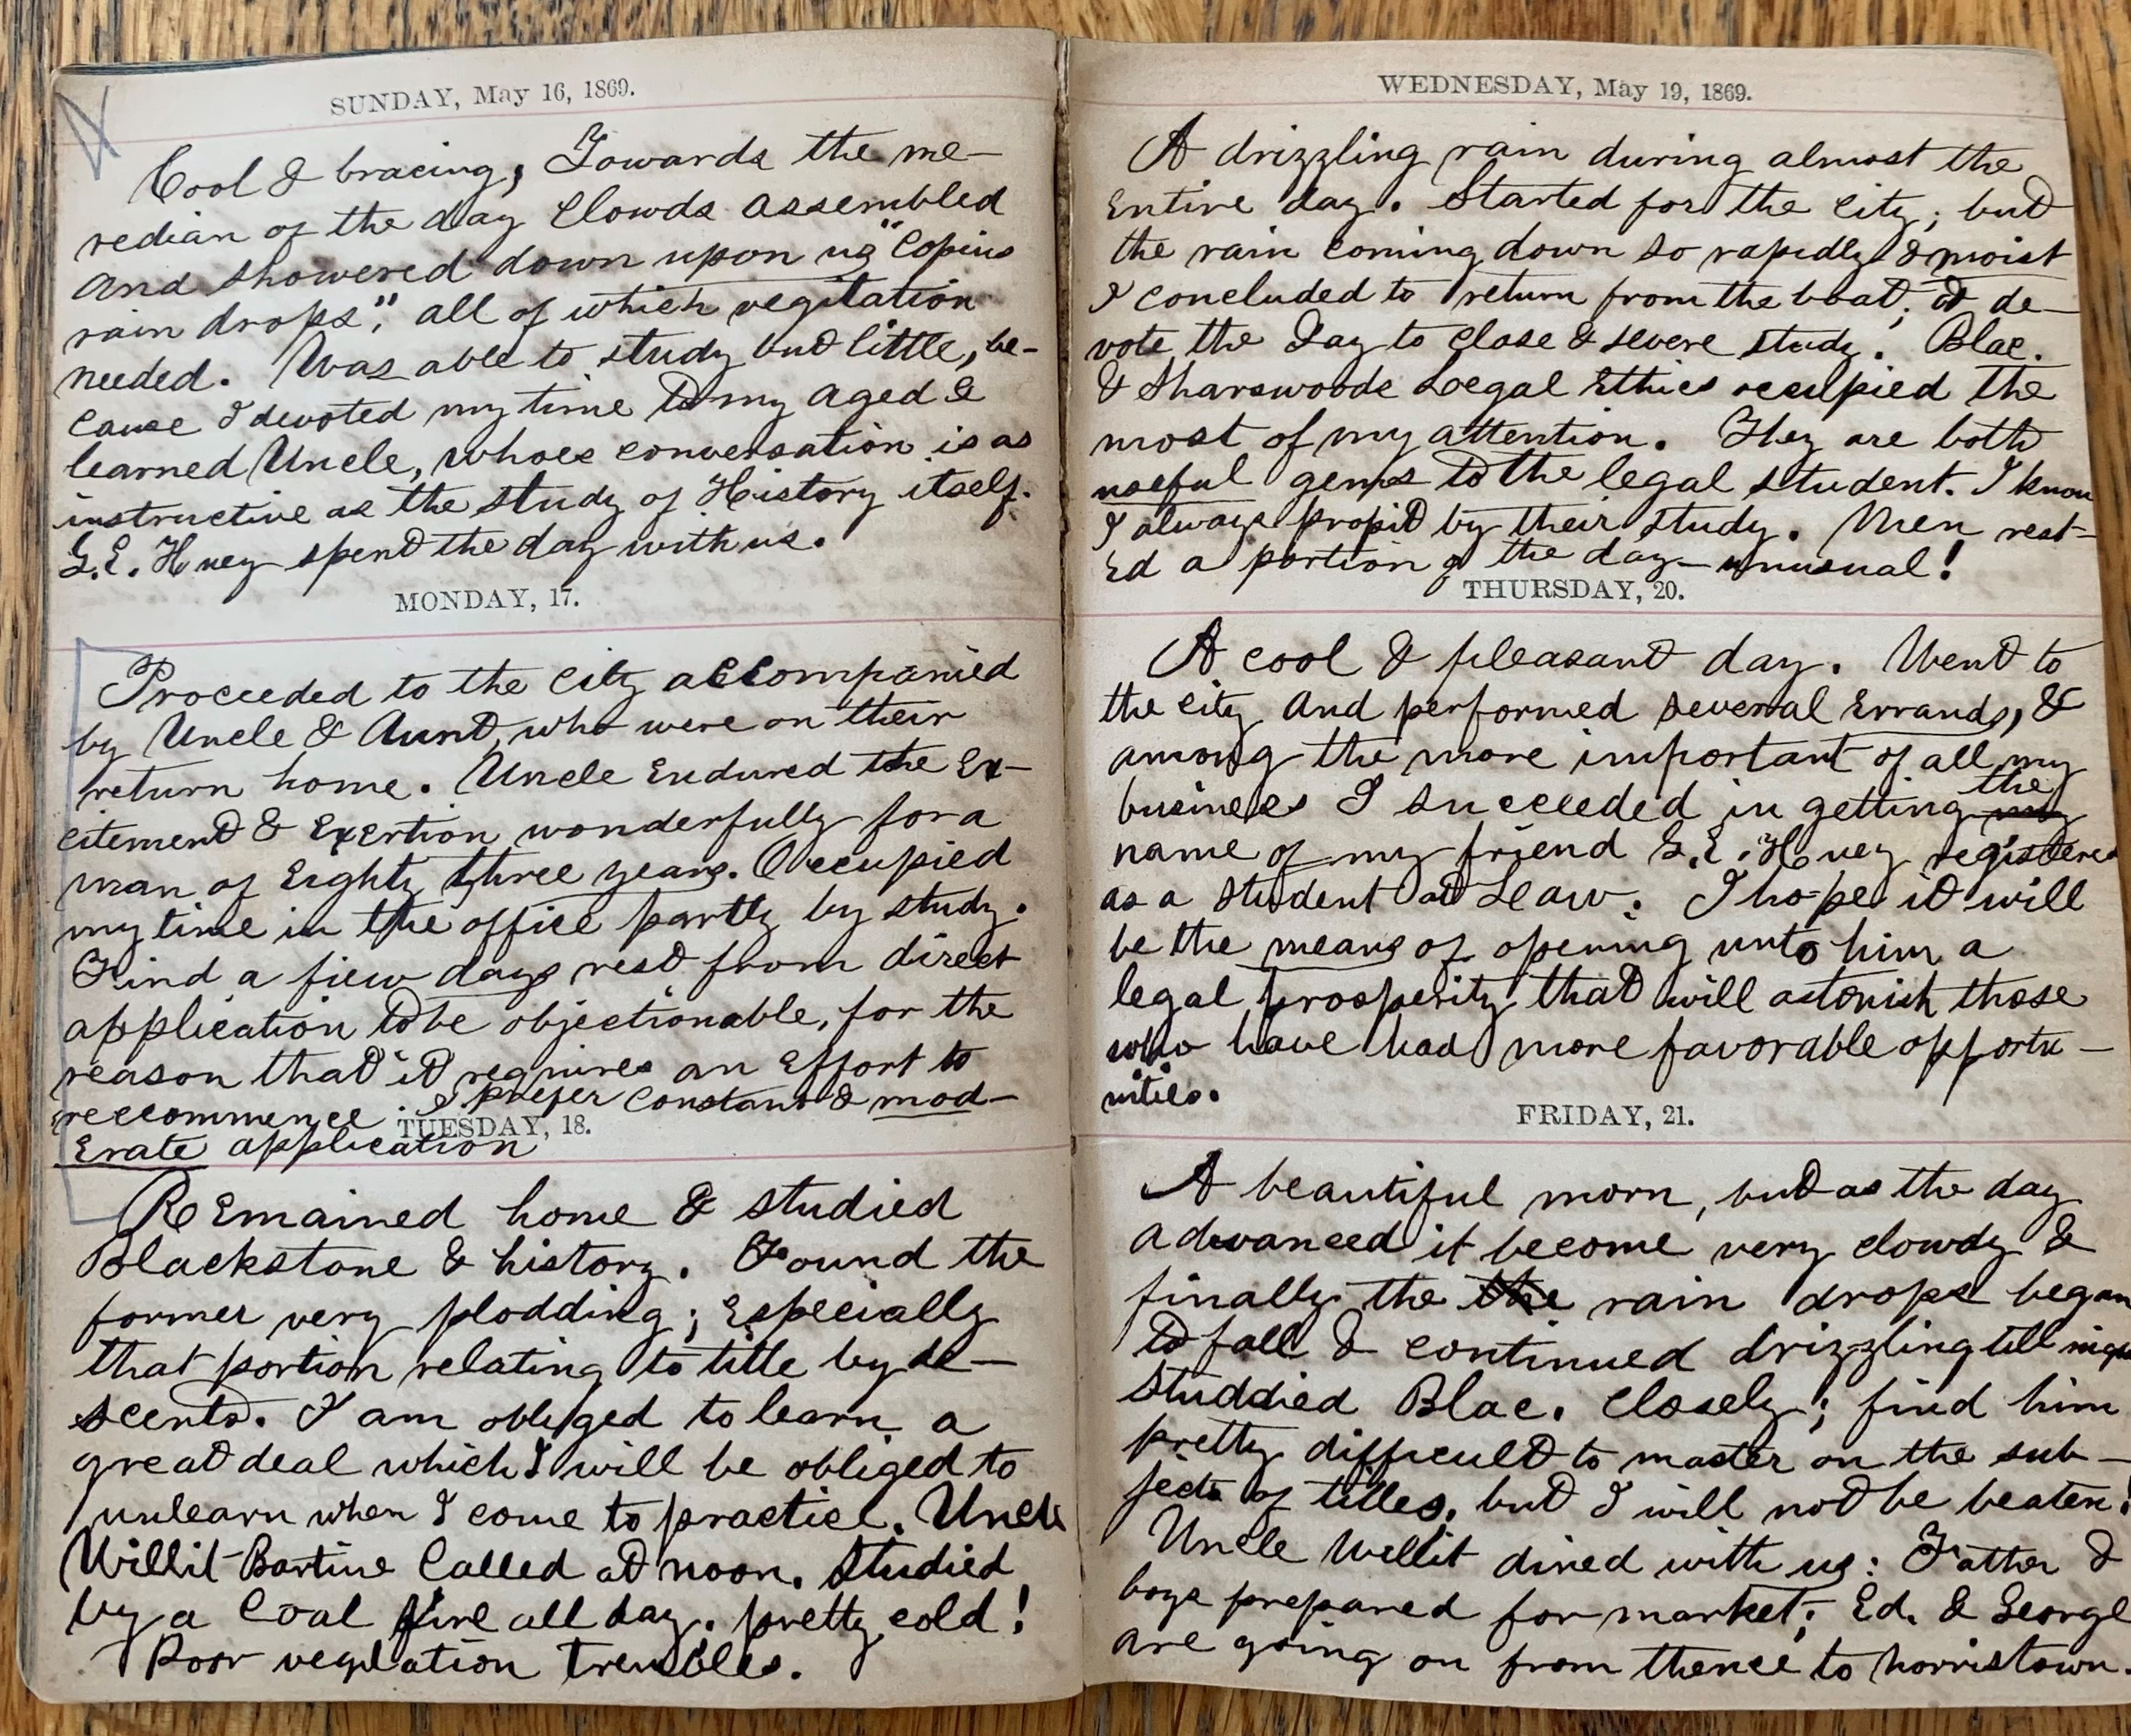 SUNDAY, May 16, 1869.
Cool & bracing, Towards the me-
redian of the day clowds assembled
and showered down upon us "Copius
rain drops", all of which vegitation
needed. Was able to study but little, be-
cause I devoted my time to my aged &
learned Uncle, whoes conversation is as
instructive as the study of History itself.
G.E. Huey spend the day with us.
MONDAY, 17.
Proceeded to the city accompanied
by Uncle & Aunt, who were on their
return home. Uncle Endured the Ex-
citement & Exertion wonderfully for a
man of Eighty three years. Occupied
my time in the office partly by study.
Find a fiew days rest from direct
application to be objectionable, for the
reason that it requires an Effort to
reccommence. I prefer constant & mod-
TUESDAY, 18.
Erate application
REmained home & studied
Blackstone & history. Found the
former very plodding; Especially
that portion relating to title by de-
scents. I am obliged to learn a
great deal which I will be obliged to
unlearn when I come to practice. Uncle
Willit Bartine Called at noon. Studied
by a Coal fire all day. pretty cold!
Poor vegetation trembles.
WEDNESDAY, May 19, 1869.
A drizzling rain during almost the
Entire day. Started for the city; but
the rain coming down so rapedly & moist
I concluded to return from the boat; & de-
vote the Day to close & severe study. Blac.
& Sharswoods Legal Ethics occupied the
most of my attention. They are both
useful gems to the legal student. I know
I always propit by their study. Men rest-
Ed a portion of the day - unusual!
THURSDAY, 20.
A cool & pleasant day. Went to
the city and performed several Errands, &
among the more important of all my
business I succeeded in getting my the
name of my friend G.E. Huey registered
as a student at Law. I hope it will
be the means of opening unto him a
legal prosperity that will astonish those
who have had more favorable opportu-
nities.
FRIDAY, 21.
A beautiful morn, but as the day
advanced it become very clowdy &
finally the the rain drops began
to fall & continued drizzling till night
studdied Blac. Closely; find him
pretty difficult to master on the sub-
jects of titles, but I will not be beaten!
Uncle Willit dined with us: Father &
boys prepared for market; Ed. & George
are going on from thence to horristown.